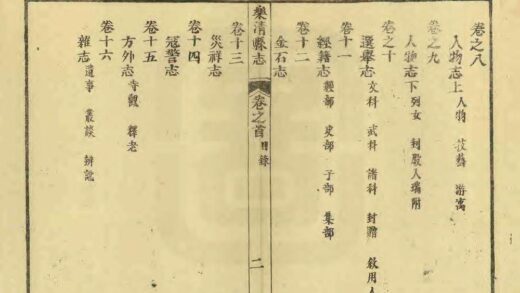 卷之八
人物志上 人物 技藝 游寓
卷之九
人物志下 列女 封 人瑞附
卷之十
選舉志 文科 武科 諸科 封贈 敘用人
卷十一
經籍志 經部 史部 子部 集部
卷十二
金石志
樂清縣志 卷之首 目錄 二
卷十三
災祥志
卷十四
寇警志
卷十五
方外志 寺觀 釋老
卷十六
雜志 遺事 叢談 辨訛